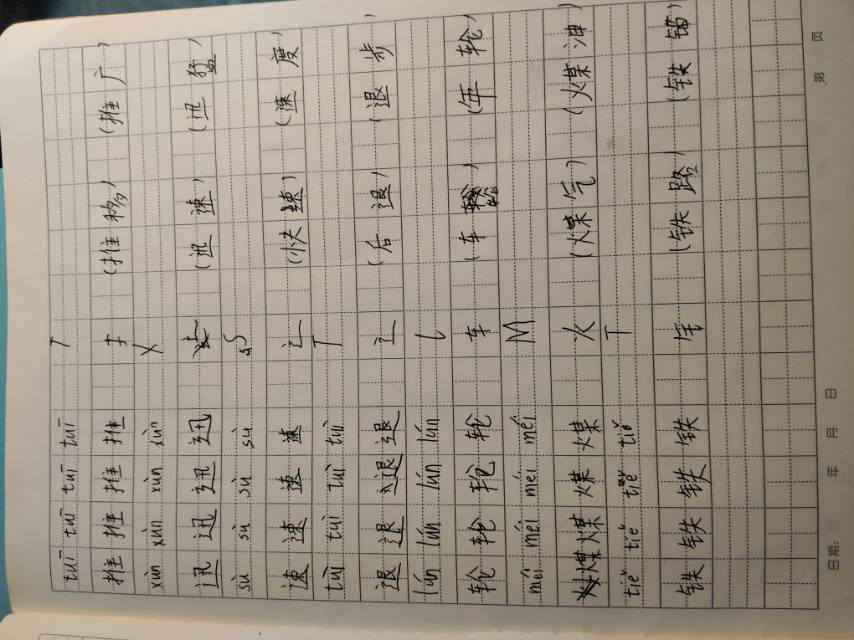 tuī tuī tuī tuī T
推 推 推 推 扌 (推移) (推广)
xùn xùn xùn xùn X
迅 迅 迅 迅 (迅速) (迅猛)
sù sù sù sù S
速 速 速 速 辶 (快速) (速度)
tuì tuì tuì tuì T
退 退 退 退 辶 (后退) (退步)
lún lún lún lún L
轮 轮 轮 轮 车 (车轮) (年轮)
méi méi méi méi M
煤 煤 煤 火 (煤气) (煤油)
tiě tiě tiě tiě T
铁 铁 铁 铁 钅 (铁路) (铁锚)
日期: 年 月 日 第 页